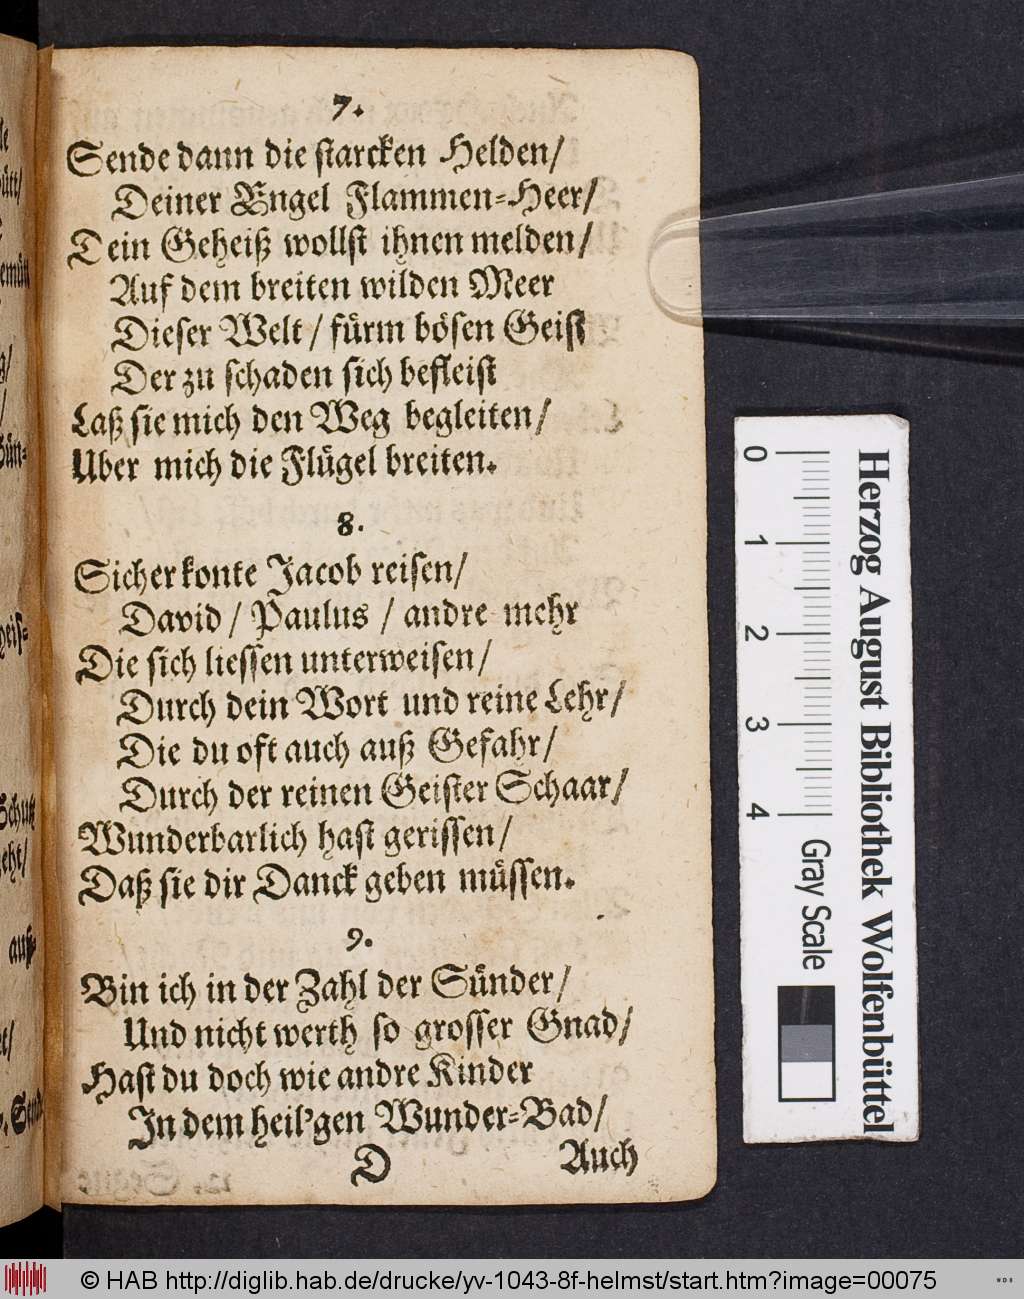 7.
Sende dann die starcken Helden/
Deiner Engel Flammen=Heer/
Dein Geheiß wollst ihnen melden/
Auf dem breiten wilden Meer
Dieser Welt / fürm bösen Geist
Der zu schaden sich befleist
Laß sie mich den Weg begleiten/
Uber mich die Flügel breiten.
8.
Sicher konte Jacob reisen/
David / Paulus / andre mehr
Die sich liessen unterweisen/
Durch dein Wort und reine Lehr/
Die du oft auch auß Gefahr/
Durch der reinen Geister Schaar/
Wunderbarlich hast gerissen/
Daß sie dir Danck geben müssen.
9.
Bin ich in der Zahl der Sünder/
Und nicht werth so grosser Gnad/
Hast du doch wie andre Kinder
In dem heil'gen Wunder=Bad/
D Auch
0 1 2 3 4 Gray Scale
Herzog August Bibliothek Wolfenbüttel
© HAB http://diglib.hab.de/drucke/yv-1043-8f-helmst/start.htm?image=00075